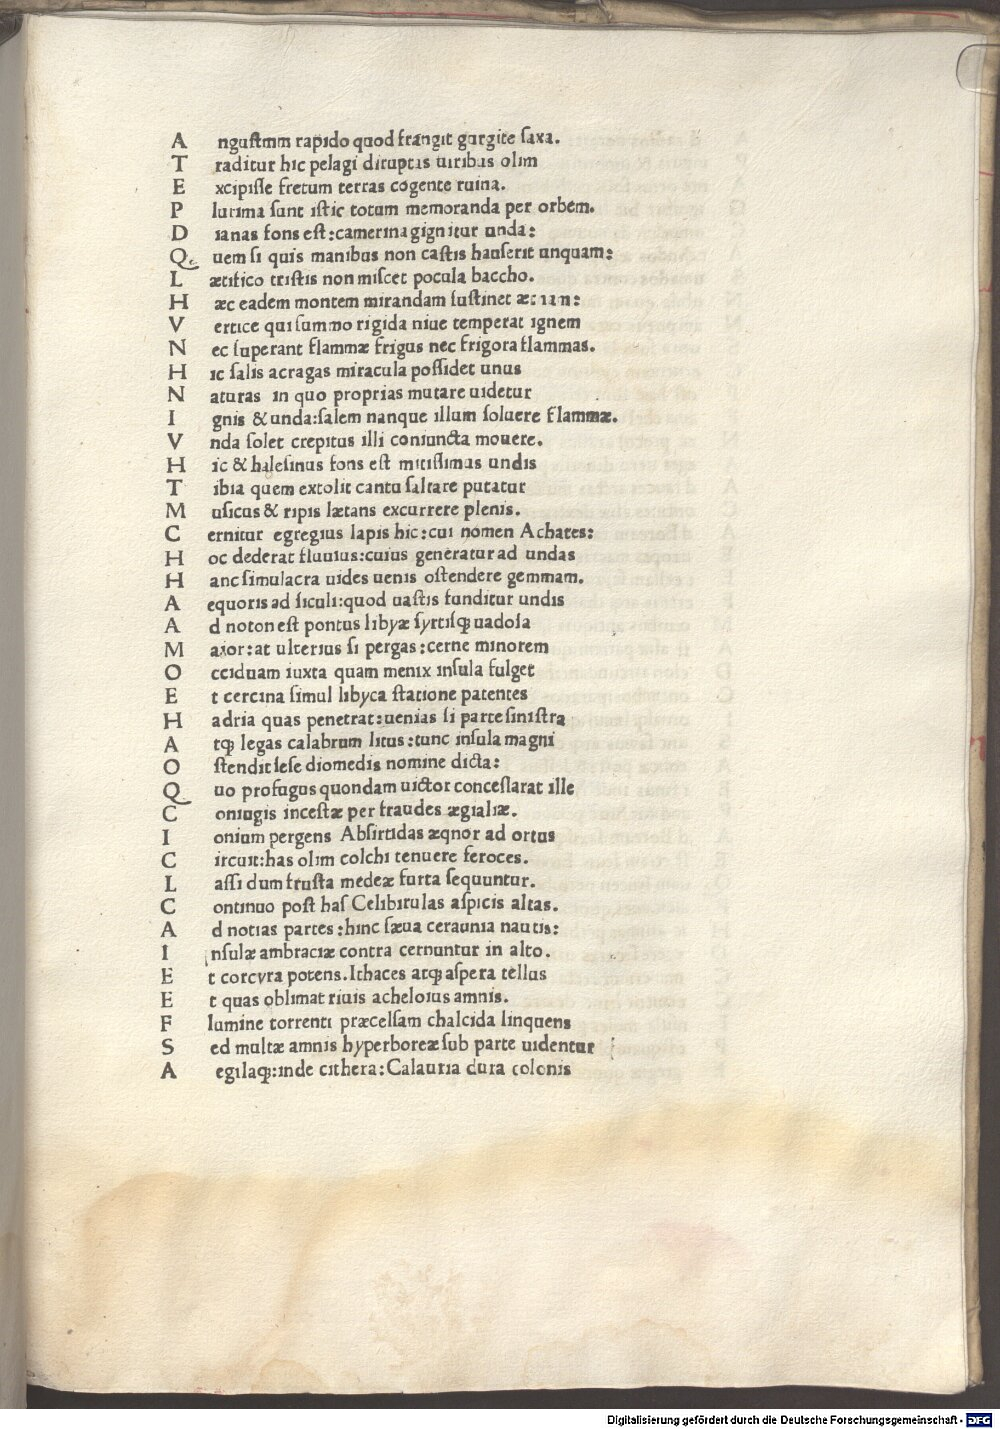 A nguſtmm rapido quod frangit gurgite ſaxa.
T raditur hic pelagi diruptis uiribus olim
E xcipiſſe fretum terras cogente ruina.
P lurima ſunt iſtic totum memoranda per orbem.
D ianas fons eſt:camerina gignitur unda:
Q uem ſi quis manibus non caſtis hauſerit unquam:
L ætifico triſtis non miſcet pocula baccho.
H æc eadem montem mirandam ſuſtinet
V ertice qui ſummo rigida niue temperat ignem
N ec ſuperant flammæ frigus nec frigora flammas.
H ic ſalis acragas miracula poſſidet unus
N aturas in quo proprias mutare uidetur
I gnis & unda:ſalem nanque illum ſoluere flammæ.
V nda ſolet crepitus illi coniuncta mouere.
H ic & haleſinus fons eſt mitiſſimus undis
T ibia quem extolit cantu ſaltare putatur
M uſicus & ripis lætans excurrere plenis.
C ernitur egregius lapis hic:cui nomen Achates:
H oc dederat fluuius:cuius generatur ad undas
H anc ſimulacra uides uenis oſtendere gemmam.
A equoris ad ſiculi:quod uaſtis funditur undis
A d noton eſt pontus libyæ ſyrtiſqꝫ uadoſa
M aior:at ulterius ſi pergas:cerne minorem
O cciduam iuxta quam menix inſula fulget
E t cercina ſimul libyca ſtatione patentes
H adria quas penetrat:uenias ſi parte ſiniſtra
A tqꝫ legas calabrum litus:tunc inſula magni
O ſtendit ſeſe diomedis nomine dicta:
Q uo profugus quondam uictor conceſſarat ille
C oniugis inceſtæ per fraudes ægialiæ.
I onium pergens Abſirtidas æqnor ad ortus
C ircuit:has olim colchi tenuere feroces.
L aſſi dum fruſta medeæ furta ſequuntur.
C ontinuo poſt haſ Celibirulas aſpicis altas.
A d notias partes:hinc ſæua ceraunia nautis:
I nſulæ ambraciæ contra cernuntur in alto.
E t corcyra potens.Ithaces atqꝫ aſpera tellus
E t quas oblimat riuis acheloius amnis.
F lumine torrenti præcelſam chalcida linquens
S ed multæ amnis hyperboreæ ſub parte uidentur
A egilaqꝫ:inde cithera:Calauria dura colonis
Digitalisierung gefördert durch die Deutsche Forschungsgemeinschaft - DFG